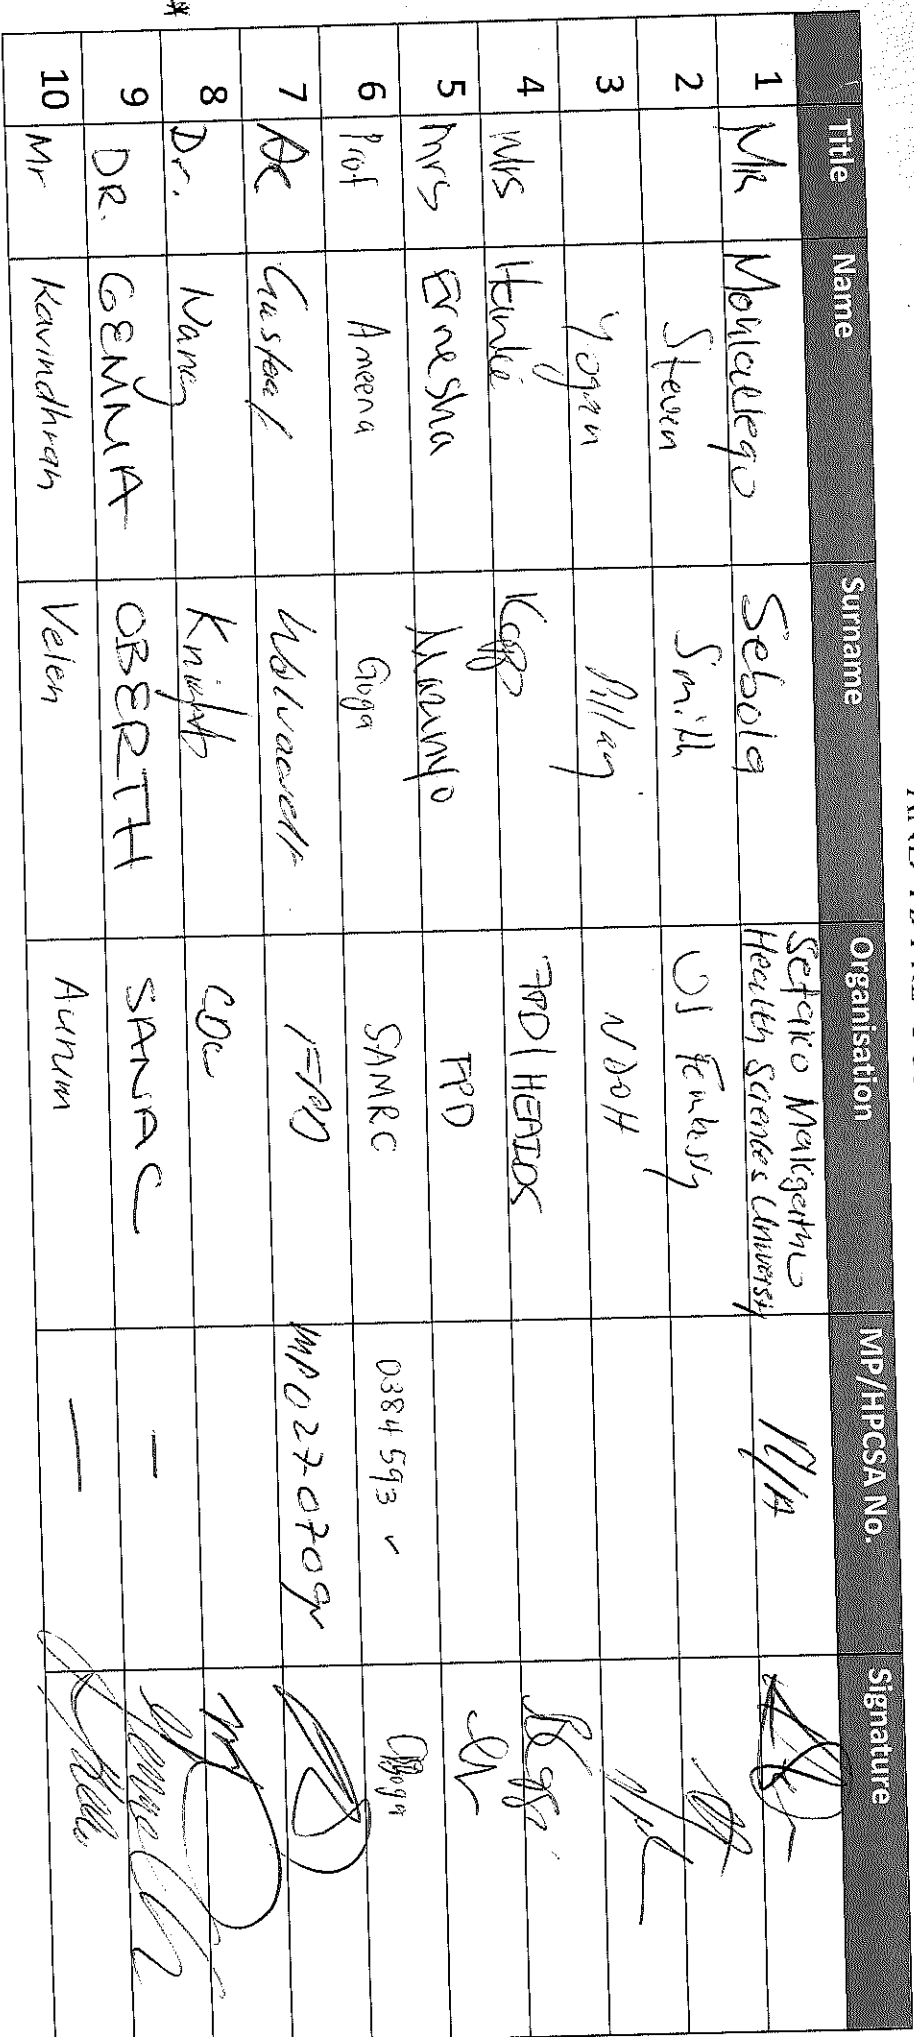 Title Name Surname Organisation MP/HPCSA No. Signature
1 Mr Sebola Health Sciences University N/A
2 Steven Smith US Embassy
3 Yogan Pillay NDOH
4 Mrs FPD/HEAIDS
5 Mrs Ernesha FPD
6 Prof Ameena Goga SAMRC 0384593
7 Gustaaf Wolvaardt FPD MP0270709
8 Dr. Nancy Knight CDC
9 DR. GEMMA OBERTH SANAC -
10 Mr Kavindhran Velen Aurum —